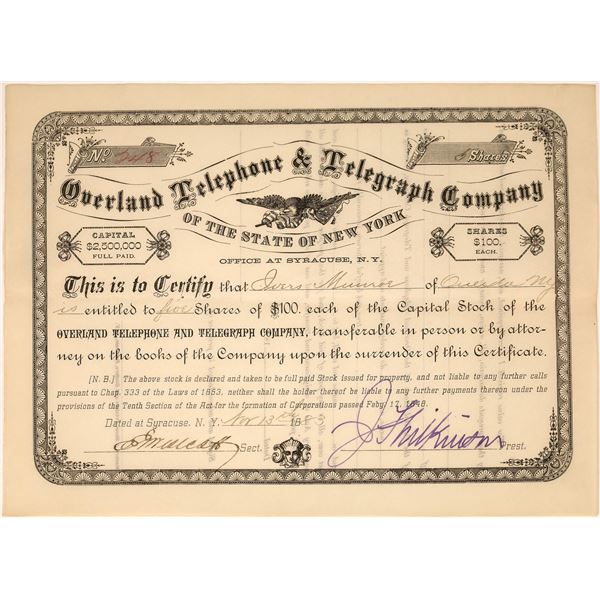 No 248
5 Shares
Overland Telephone & Telegraph Company
OF THE STATE OF NEW YORK
CAPITAL
$2,500,000
FULL PAID.
SHARES
$100.
EACH.
OFFICE AT SYRACUSE, N.Y.
This is to Certify that Munroe of N.Y.
is entitled to five Shares of $100. each of the Capital Stock of the
OVERLAND TELEPHONE AND TELEGRAPH COMPANY, transferable in person or by attor-
ney on the books of the Company upon the surrender of this Certificate.
[N. B.] The above stock is declared and taken to be full paid Stock issued for property, and not liable to any further calls
pursuant to Chap. 333 of the Laws of 1853, neither shall the holder thereof be liable to any further payments thereon under
the provisions of the Tenth Section of the Act for the formation of Corporations passed Feby. 17, 1848.
Dated at Syracuse. N. Y. Nov 13th 1883
Sect. J Wilkinson Prest.